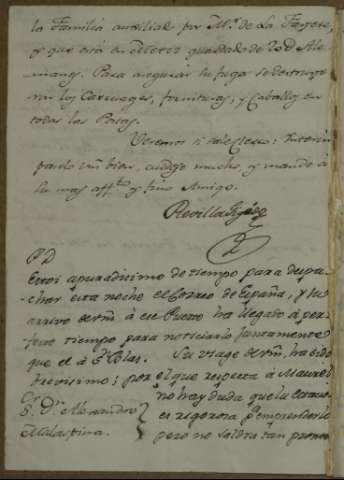 la Familia auxiliada por Mr. de La Fayete,
y que está en Metz guardada de 20 D Ale-
manes. Para asegurar la fuga se destruye
ron los Carruages, fornituras, y Caballos en
todas las Postas.
Veremos si sale cierto: Interin
Vm bien, cuidese mucho, y mande á
su mas affto. y fino Amigo.
Revilla Gigedo
PD
Estoi apuradisimo de tiempo para despa-
char esta noche el Correo de España, y la
arrivo de Vm á ese Puerto ha llegado á per-
fecto tiempo para noticiarlo juntamente
que el á Sn Blas. Su viage de Vm ha sido
brevisimo; por el que respecta á Maurel
no hay duda que la
es rigorosa pa. emprenderlo
pero no saldrá tan pronto
S. Dn. Alexandro
Malaspina.